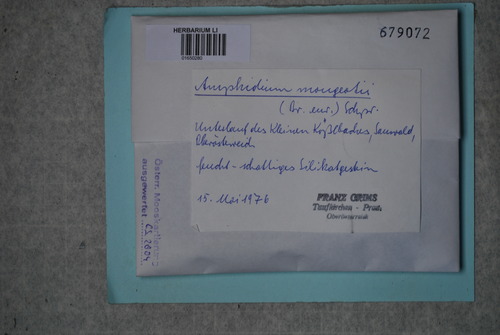 HERBARIUM LI
679072
Amphidium mougeotii
(Br. eur.) Schpr.
Unterlauf des Kleinen Kößlbaches, Sauwald,
Oberösterreich
feucht-schattiges Silikatgestein
15. Mai 1976
FRANZ GRIMS
Taufkirchen - Pram
Oberösterreich
Österr. Mooskartierung
ausgewertet